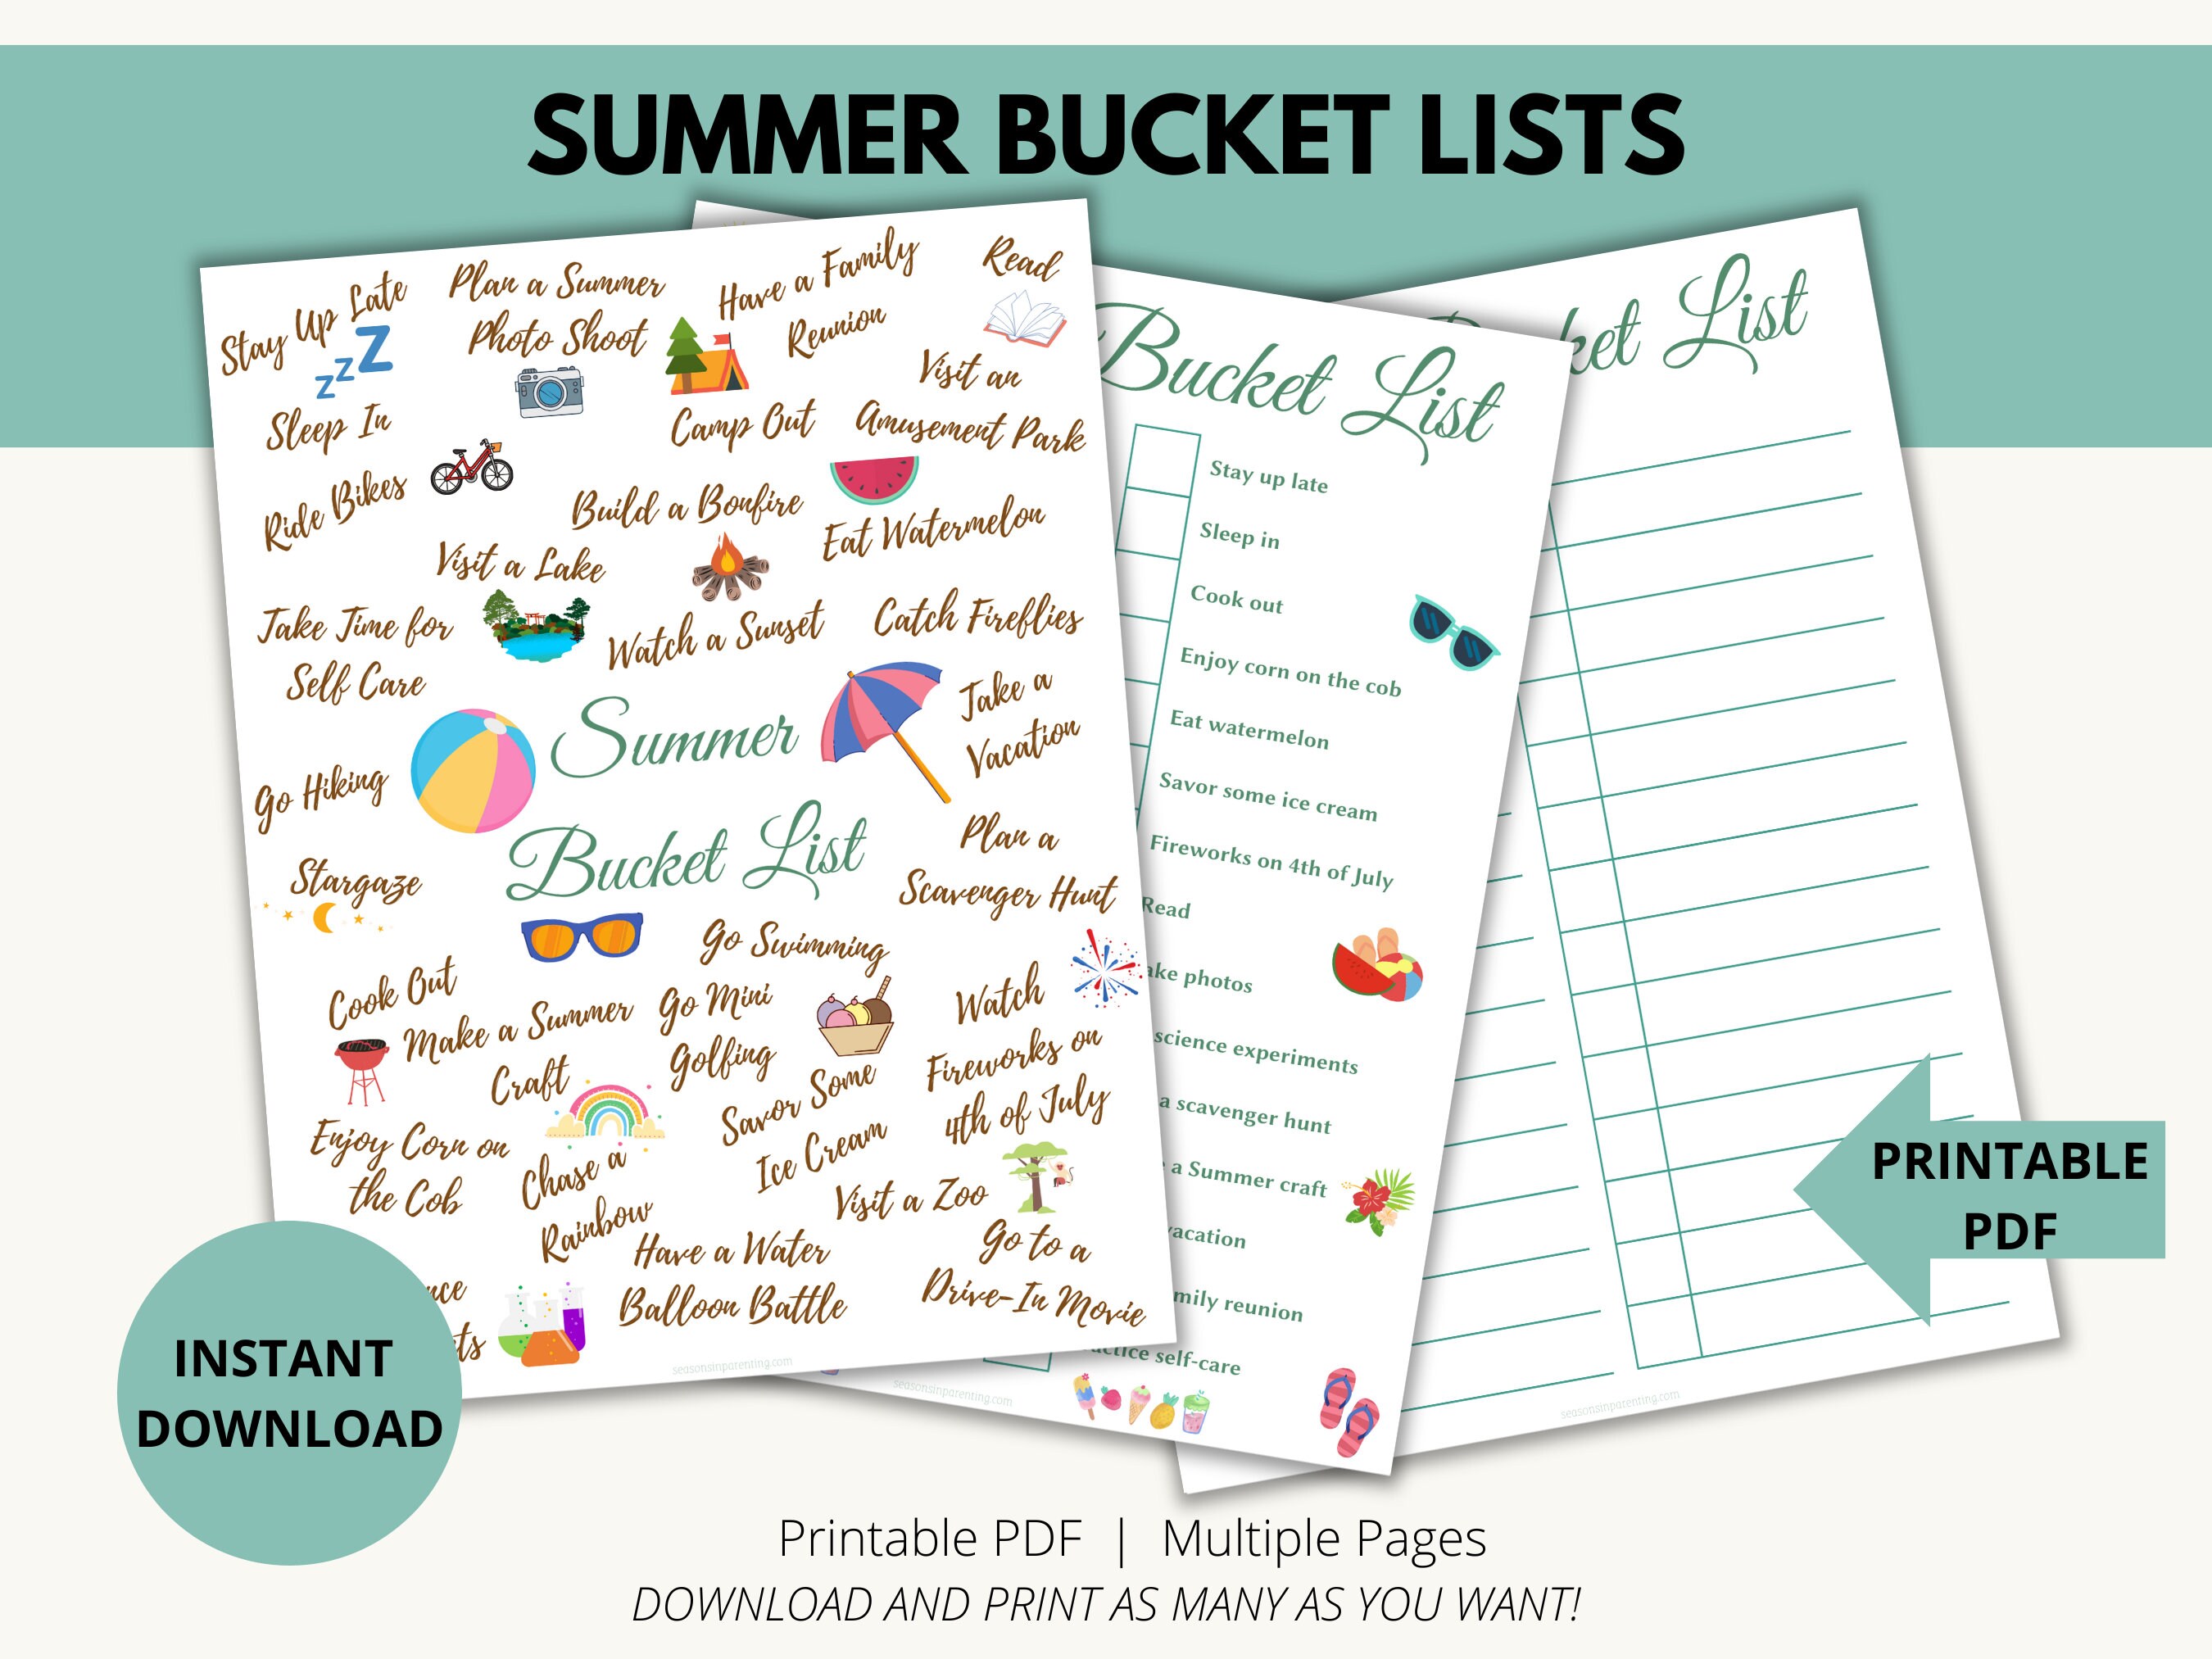 SUMMER BUCKET LISTS
Stay Up Late
zzZ
Sleep In
Plan a Summer
Photo Shoot
Have a Family
Reunion
Read
Visit an
Amusement Park
Camp Out
Ride Bikes
Build a Bonfire
Eat Watermelon
Visit a Lake
Take Time for
Self Care
Watch a Sunset
Catch Fireflies
Take a
Vacation
Go Hiking
Summer
Bucket List
Plan a
Scavenger Hunt
Stargaze
Go Swimming
Cook Out
Make a Summer
Craft
Go Mini
Golfing
Watch
Fireworks on
4th of July
Savor Some
Ice Cream
Enjoy Corn on
the Cob
Chase a
Rainbow
Visit a Zoo
Have a Water
Balloon Battle
Go to a
Drive-In Movie
seasonsinparenting.com
Bucket List
Stay up late
Sleep in
Cook out
Enjoy corn on the cob
Eat watermelon
Savor some ice cream
Fireworks on 4th of July
Read
photos
science experiments
a scavenger hunt
a Summer craft
vacation
reunion
self-care
seasonsinparenting.com
List
seasonsinparenting.com
INSTANT
DOWNLOAD
PRINTABLE
PDF
Printable PDF | Multiple Pages
DOWNLOAD AND PRINT AS MANY AS YOU WANT!